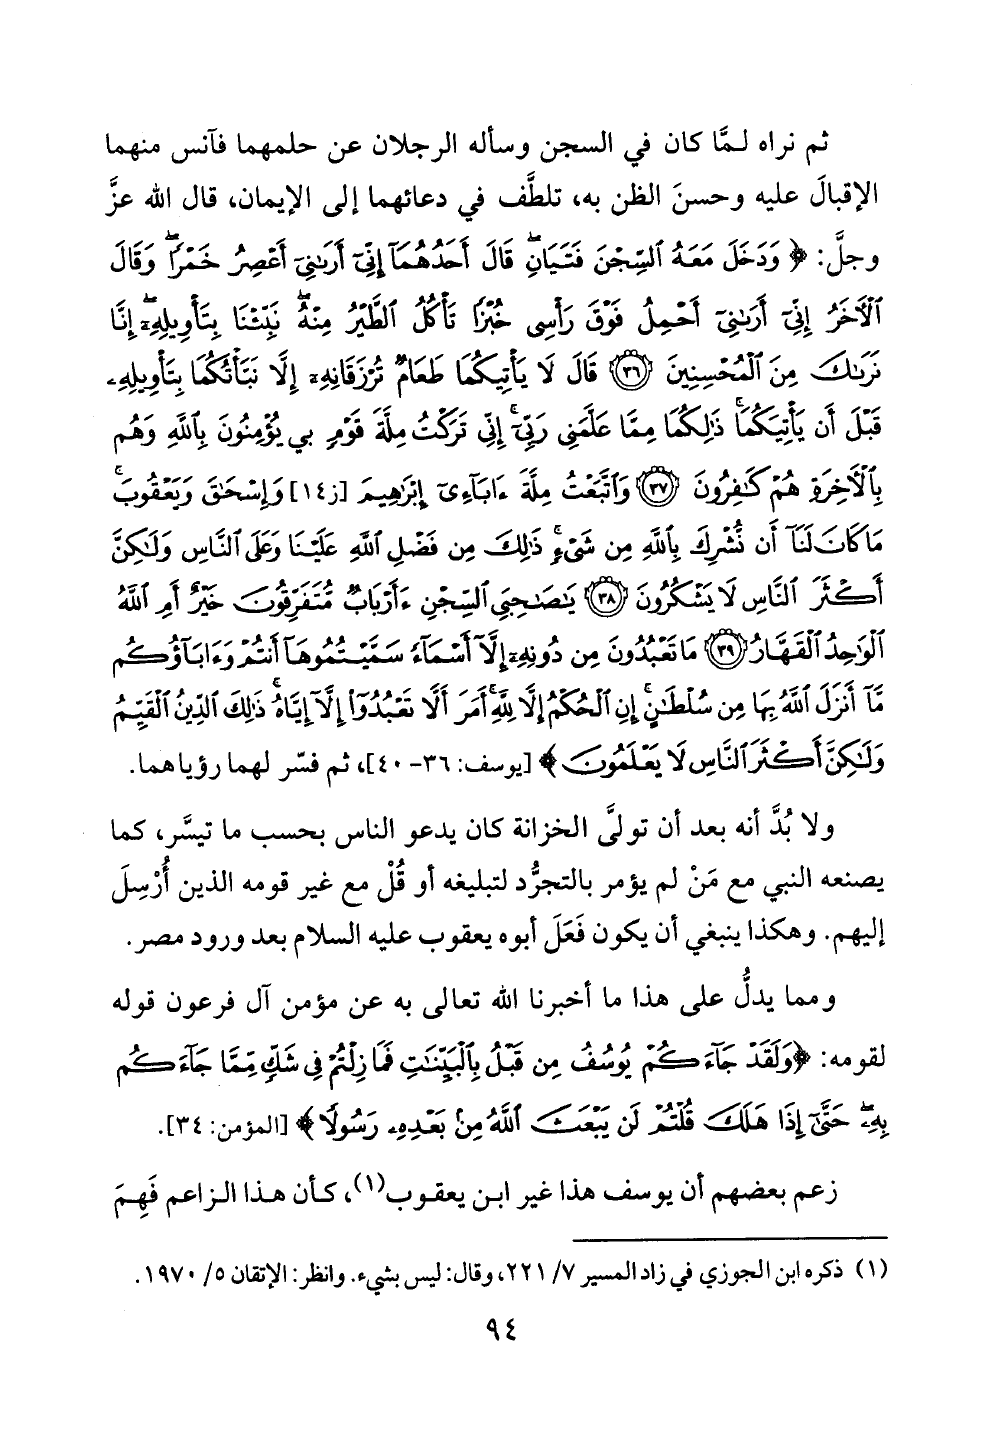 ثم نراه لـمَّا كان في السجن وسأله الرجلان عن حلمهما فآنس منهما
الإقبالَ عليه وحسنَ الظن به، تلطَّف في دعائهما إلى الإيمان، قال الله عزَّ
وجلَّ: ﴿ وَدَخَلَ مَعَهُ ٱلسِّجْنَ فَتَيَانِۖ قَالَ أَحَدُهُمَآ إِنِّىٓ أَرَىٰنِىٓ أَعْصِرُ خَمْرًاۖ وَقَالَ
ٱلْـَٔاخَرُ إِنِّىٓ أَرَىٰنِىٓ أَحْمِلُ فَوْقَ رَأْسِى خُبْزًا تَأْكُلُ ٱلطَّيْرُ مِنْهُۖ نَبِّئْنَا بِتَأْوِيلِهِۦٓۖ إِنَّا
نَرَىٰكَ مِنَ ٱلْمُحْسِنِينَ ٣٦ قَالَ لَا يَأْتِيكُمَا طَعَامٌ تُرْزَقَانِهِۦٓ إِلَّا نَبَّأْتُكُمَا بِتَأْوِيلِهِۦ
قَبْلَ أَن يَأْتِيَكُمَاۚ ذَٰلِكُمَا مِمَّا عَلَّمَنِى رَبِّىٓۚ إِنِّى تَرَكْتُ مِلَّةَ قَوْمٍ بي يُؤْمِنُونَ بِٱللَّهِ وَهُم
بِٱلْـَٔاخِرَةِ هُمْ كَـٰفِرُونَ ٣٧ وَٱتَّبَعْتُ مِلَّةَ ءَابَآءِىٓ إِبْرَٰهِيمَ [ز١٤] وَإِسْحَـٰقَ وَيَعْقُوبَۚ
مَا كَانَ لَنَآ أَن نُّشْرِكَ بِٱللَّهِ مِن شَىْءٍۚ ذَٰلِكَ مِن فَضْلِ ٱللَّهِ عَلَيْنَا وَعَلَى ٱلنَّاسِ وَلَـٰكِنَّ
أَكْثَرَ ٱلنَّاسِ لَا يَشْكُرُونَ ٣٨ يَـٰصَـٰحِبَىِ ٱلسِّجْنِ ءَأَرْبَابٌ مُّتَفَرِّقُونَ خَيْرٌ أَمِ ٱللَّهُ
ٱلْوَٰحِدُ ٱلْقَهَّارُ ٣٩ مَا تَعْبُدُونَ مِن دُونِهِۦٓ إِلَّآ أَسْمَآءً سَمَّيْتُمُوهَآ أَنتُمْ وَءَابَآؤُكُم
مَّآ أَنزَلَ ٱللَّهُ بِهَا مِن سُلْطَـٰنٍۚ إِنِ ٱلْحُكْمُ إِلَّا لِلَّهِۚ أَمَرَ أَلَّا تَعْبُدُوٓا۟ إِلَّآ إِيَّاهُۚ ذَٰلِكَ ٱلدِّينُ ٱلْقَيِّمُ
وَلَـٰكِنَّ أَكْثَرَ ٱلنَّاسِ لَا يَعْلَمُونَ ﴾ [يوسف: ٣٦-٤٠]، ثم فسّر لهما رؤياهما.
ولا بُدَّ أنه بعد أن تولىَّ الخزانة كان يدعو الناس بحسب ما تيسَّر، كما
يصنعه النبي مع مَنْ لم يؤمر بالتجرُّد لتبليغه أو قُلْ مع غير قومه الذين أُرْسِلَ
إليهم. وهكذا ينبغي أن يكون فَعَلَ أبوه يعقوب عليه السلام بعد ورود مصر.
ومما يدلُّ على هذا ما أخبرنا الله تعالى به عن مؤمن آل فرعون قوله
لقومه: ﴿وَلَقَدْ جَآءَكُمْ يُوسُفُ مِن قَبْلُ بِٱلْبَيِّنَـٰتِ فَمَا زِلْتُمْ فِى شَكٍّ مِّمَّا جَآءَكُم
بِهِۦۖ حَتَّىٰٓ إِذَا هَلَكَ قُلْتُمْ لَن يَبْعَثَ ٱللَّهُ مِنۢ بَعْدِهِۦ رَسُولًا﴾ [المؤمن: ٣٤].
زعم بعضهم أن يوسف هذا غير ابن يعقوب(١)، كأن هذا الزاعم فَهِمَ
(١) ذكره ابن الجوزي في زاد المسير ٧/ ٢٢١، وقال: ليس بشيء. وانظر: الإتقان ٥/ ١٩٧٠.
٩٤